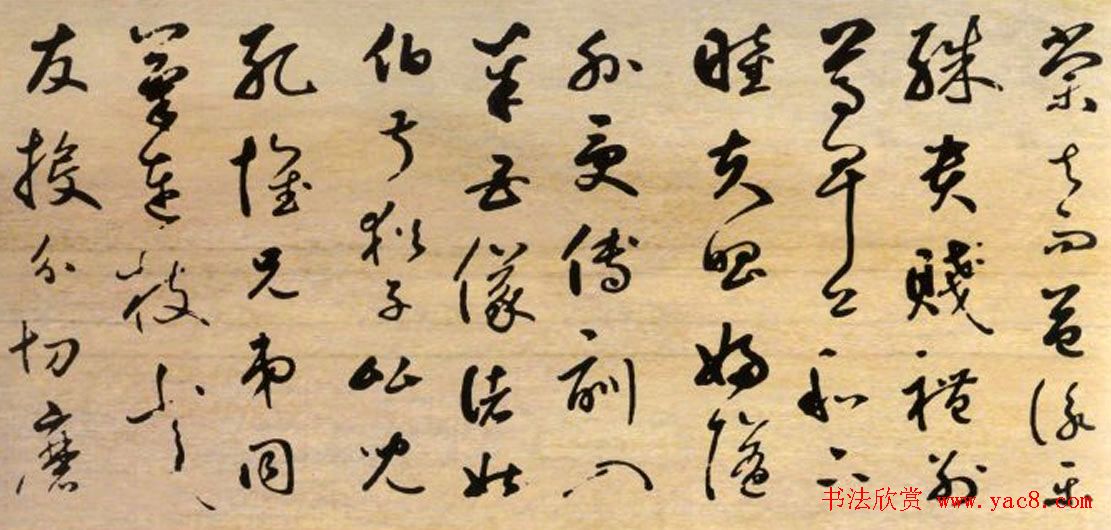 棠去而益詠樂
殊貴賤禮別
尊卑上和下
睦夫唱婦隨
外受傅訓入
奉母儀諸姑
伯叔猶子比兒
孔懷兄弟同
氣連枝交
友投分切磨
书法欣赏 www.yac8.com